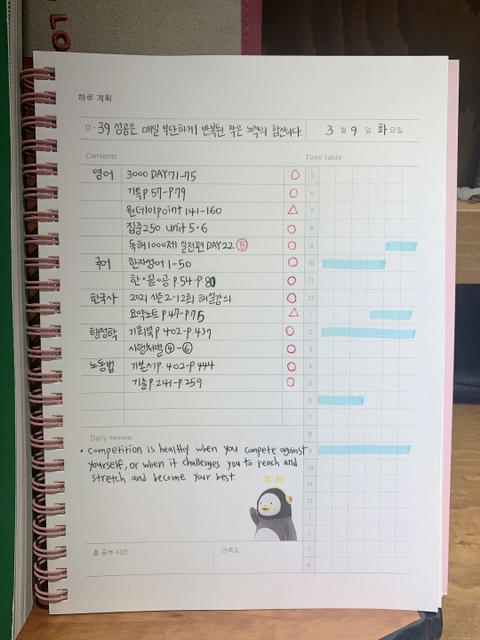 LO
하루 계획
D-39 성공은 매일 부단하게 반복된 작은 노력의 합산이다.
3 월 9 일 화 요일
Contents
Time table
영어 3000 DAY 71-75
기특 p.57-p.79
원데이 point 141-160
집중250 unit 5·6
독해1000제 실전편 DAY22 8
국어 한자성어 1-50
한·끝·공 p.54-p.80
한국사 2021 시즌2-12회 해설강의
요약노트 p.47-p.75
행정학 기회독 p.402-p.437
시행처별 ④-⑥
노동법 기본서 p.402-p.444
기출 p.241-p.259
5
6
7
8
9
10
11
12
1
2
3
4
5
6
7
8
9
10
11
12
1
2
3
4
Daily review
• Competition is healthy when you compete against
yourself, or when it challenges you to reach and
stretch and become your best.
총 공부 시간 :
만족도 :